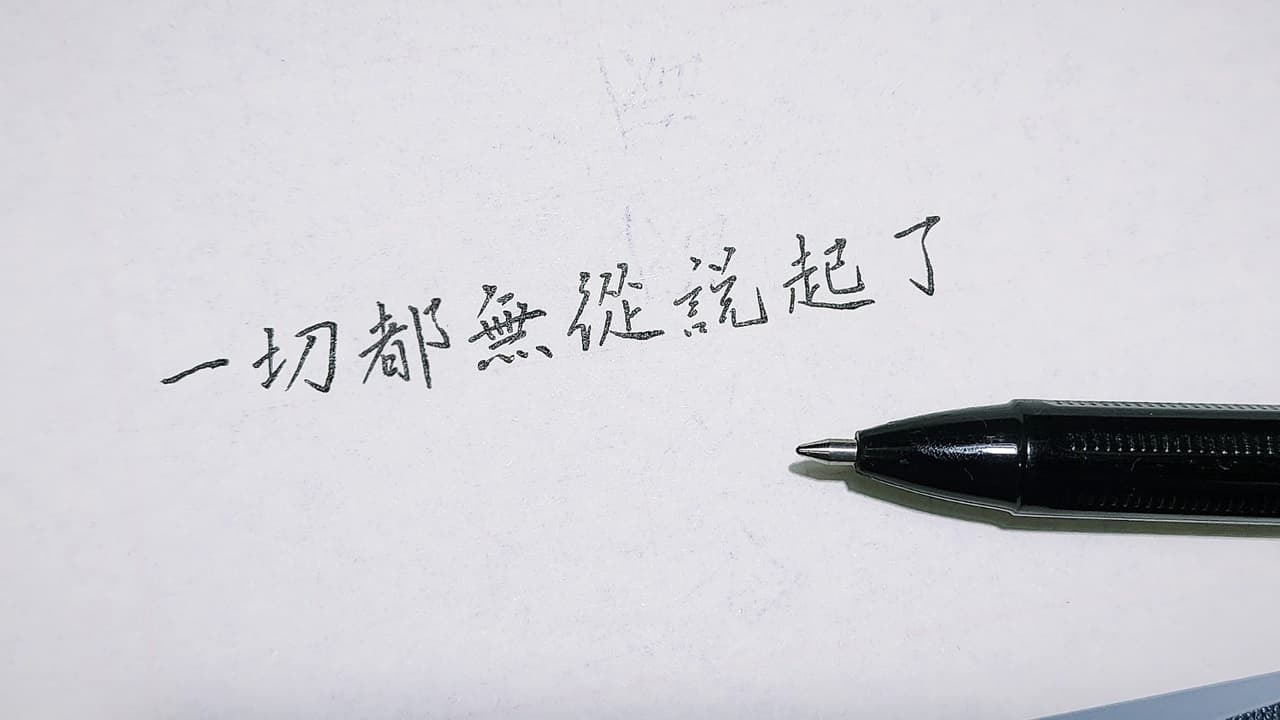 一切都無從說起了